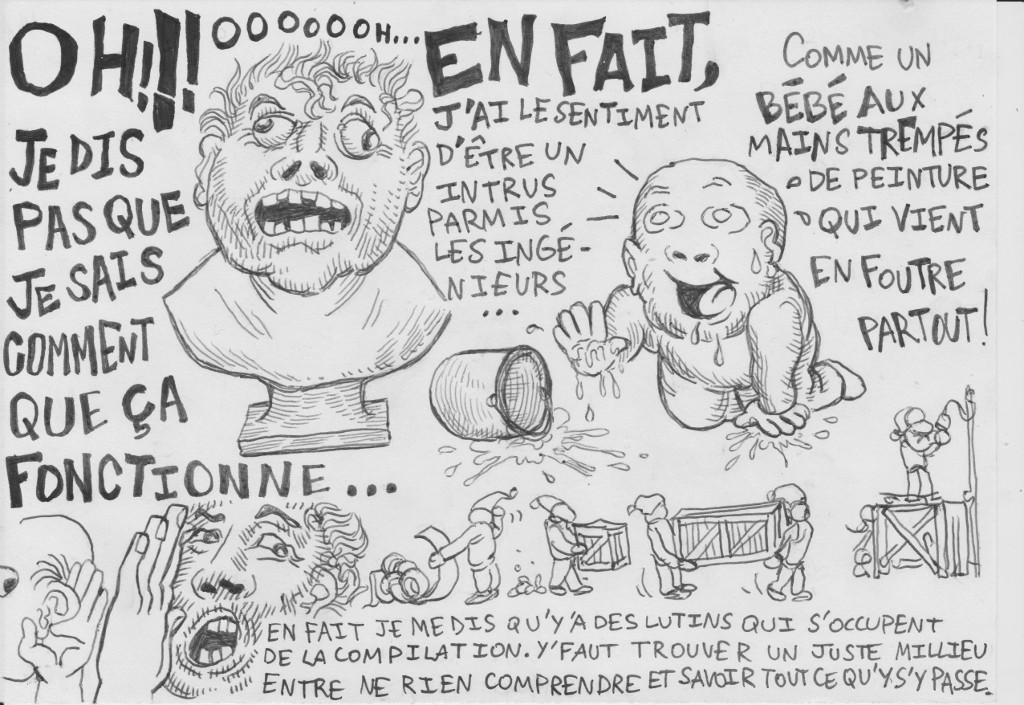 OH!!! OOOOOOH...
JE DIS
PAS QUE
JE SAIS
COMMENT
QUE ÇA
FONCTIONNE...
EN FAIT,
J'AI LE SENTIMENT
D'ÊTRE UN
INTRUS
PARMIS
LES INGÉ-
NIEURS
...
COMME UN
BÉBÉ AUX
MAINS TREMPÉS
DE PEINTURE
QUI VIENT
EN FOUTRE
PARTOUT!
EN FAIT JE ME DIS QU'Y'A DES LUTINS QUI S'OCCUPENT
DE LA COMPILATION. Y'FAUT TROUVER UN JUSTE MILLIEU
ENTRE NE RIEN COMPRENDRE ET SAVOIR TOUT CE QU'Y S'Y PASSE.